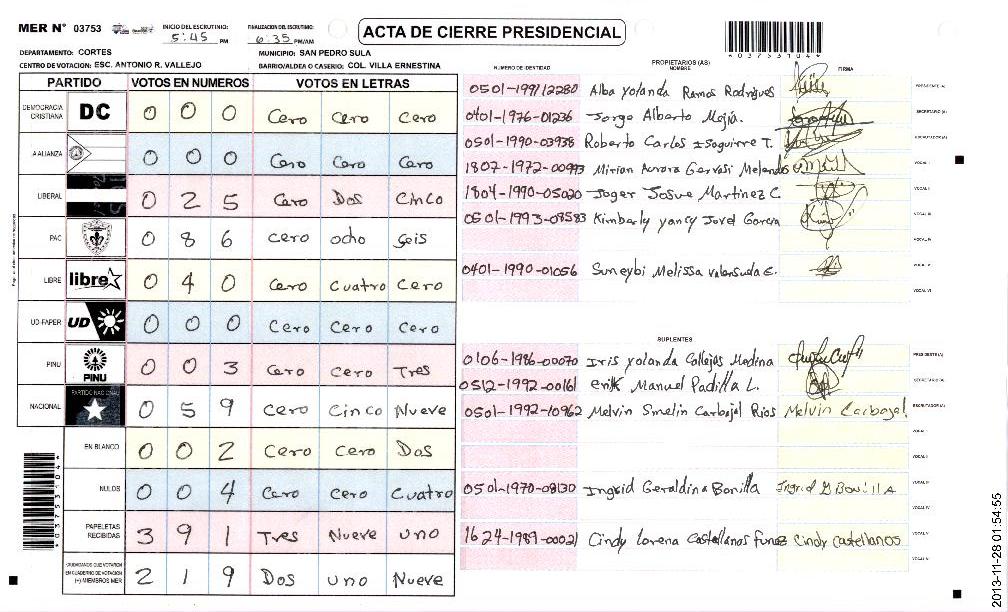 MER N° 03753
INICIO DEL ESCRUTINIO: 5:45 PM
FINALIZACION DEL ESCRUTINIO: 6:35 PM/AM
ACTA DE CIERRE PRESIDENCIAL
DEPARTAMENTO: CORTES
MUNICIPIO: SAN PEDRO SULA
CENTRO DE VOTACION: ESC. ANTONIO R. VALLEJO
BARRIO/ALDEA O CASERIO: COL. VILLA ERNESTINA
PARTIDO VOTOS EN NUMEROS VOTOS EN LETRAS
DEMOCRACIA CRISTIANA DC 0 0 0 Cero Cero Cero
ALIANZA 0 0 0 Cero Cero Cero
LIBERAL 0 2 5 Cero Dos Cinco
PAC 0 8 6 cero ocho seis
LIBRE libre 0 4 0 Cero cuatro Cero
UD-FAPER UD 0 0 0 Cero Cero Cero
PINU PINU 0 0 3 Cero Cero Tres
NACIONAL PARTIDO NACIONAL 0 5 9 Cero Cinco Nueve
EN BLANCO 0 0 2 Cero Cero Dos
NULOS 0 0 4 Cero Cero Cuatro
PAPELETAS RECIBIDAS 3 9 1 Tres Nueve uno
CIUDADANOS QUE VOTARON EN CUADERNO DE VOTACION (+) MIEMBROS MER 2 1 9 Dos uno Nueve
*03753104*
NUMERO DE IDENTIDAD PROPIETARIOS (AS) NOMBRE FIRMA
0501-1991-12280 Alba Yolanda Ramos Rodrigues PRESIDENTE (A)
0401-1976-01236 Jorge Alberto Mejia. SECRETARIO (A)
0501-1990-03938 Roberto Carlos Isaguirre T. ESCRUTADOR (A)
1807-1972-00993 Mirian Aurora Garvasi Melendes VOCAL I
1804-1990-05020 Joger Josue Martinez C. VOCAL II
0501-1993-08583 Kimberly yancy Jovel Garcia VOCAL III
VOCAL IV
0401-1990-01056 Suneybi Melissa Valensuela E. VOCAL V
VOCAL VI
SUPLENTES
0106-1986-00070 Iris Yolanda Callejas Medina PRESIDENTE (A)
0512-1992-00161 erik Manuel Padilla L. SECRETARIO (A)
0501-1992-10962 Melvin Smelin Carbajal Rios Melvin Carbajal. ESCRUTADOR (A)
VOCAL I
VOCAL II
0501-1970-08130 Ingrid Geraldina Bonilla Ingrid G Bonilla VOCAL III
VOCAL IV
1624-1989-00021 Cindy Lorena Castellanos funez Cindy castellanos VOCAL V
VOCAL VI
*03753104*
2013-11-28 01:54:55